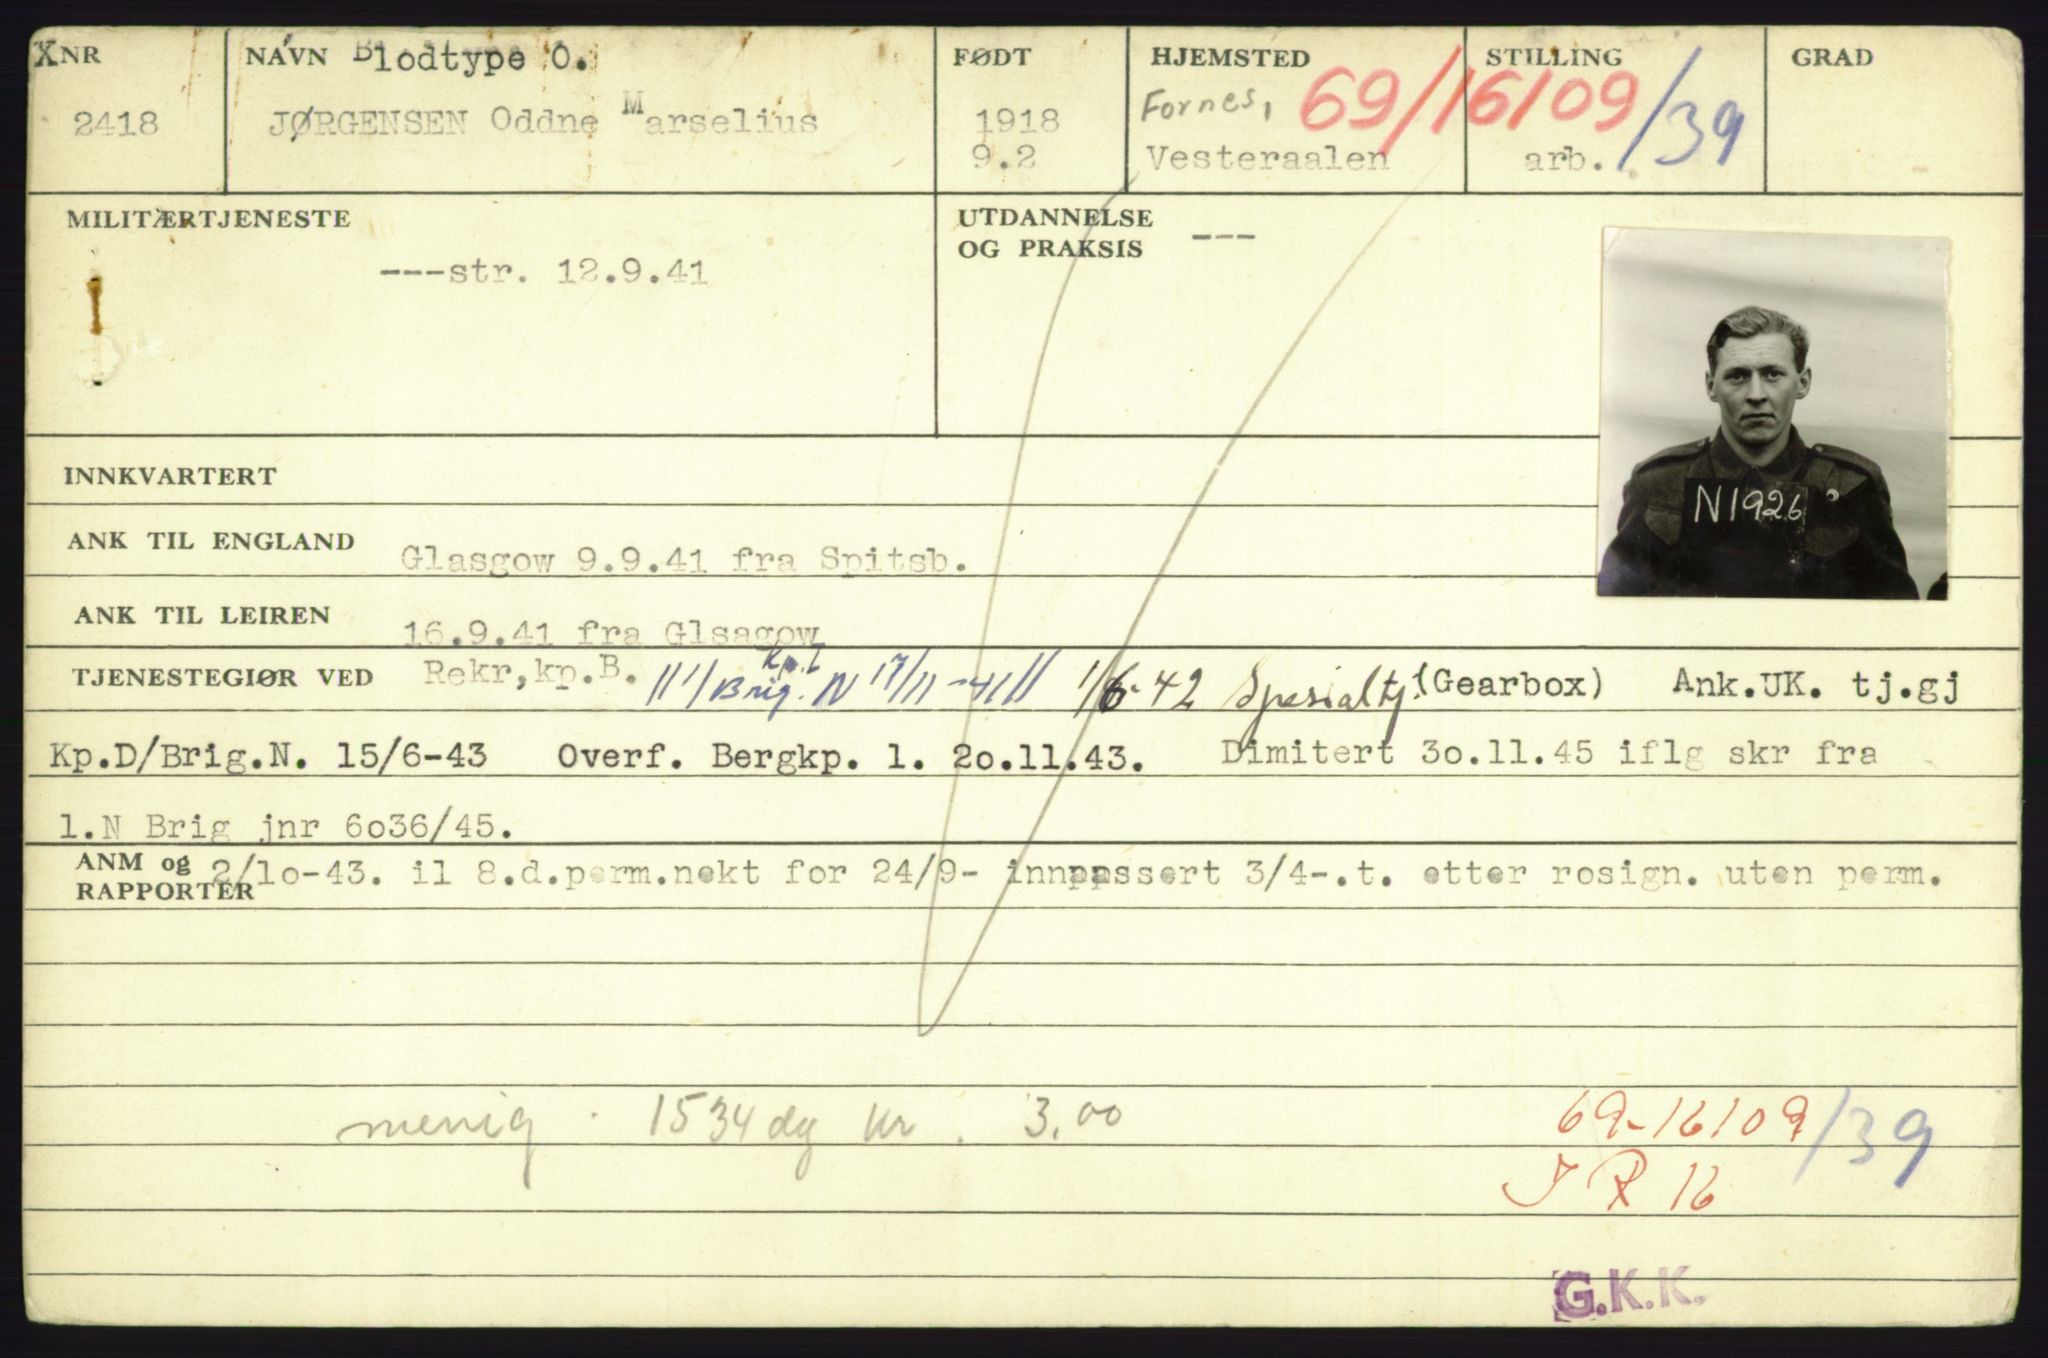 XNR NAVN Blodtype O. FØDT HJEMSTED STILLING GRAD
2418 JØRGENSEN Oddne Marselius 1918 Fornes, 69/16109/39
9.2 Vesteraalen arb.
MILITÆRTJENESTE
---str. 12.9.41
UTDANNELSE
OG PRAKSIS ---
N1926
INNKVARTERT
ANK TIL ENGLAND Glasgow 9.9.41 fra Spitsb.
ANK TIL LEIREN 16.9.41 fra Glsagow
TJENESTEGIØR VED Rekr,kp.B. // 1/Brig. N 17/11-41 // 1/6-42 Spesialtj. (Gearbox) Ank.UK. tj.gj
Kp.D/Brig.N. 15/6-43 Overf. Bergkp. 1. 2o.11.43. Dimitert 3o.11.45 iflg skr fra
1.N Brig jnr 6o36/45.
ANM og 2/1o-43. il 8.d.perm.nekt for 24/9- innpassert 3/4-.t. etter rosign. uten perm.
RAPPORTER
menig. 1534 dg kr. 3,00
69-16109/39
I R 16
G.K.K.